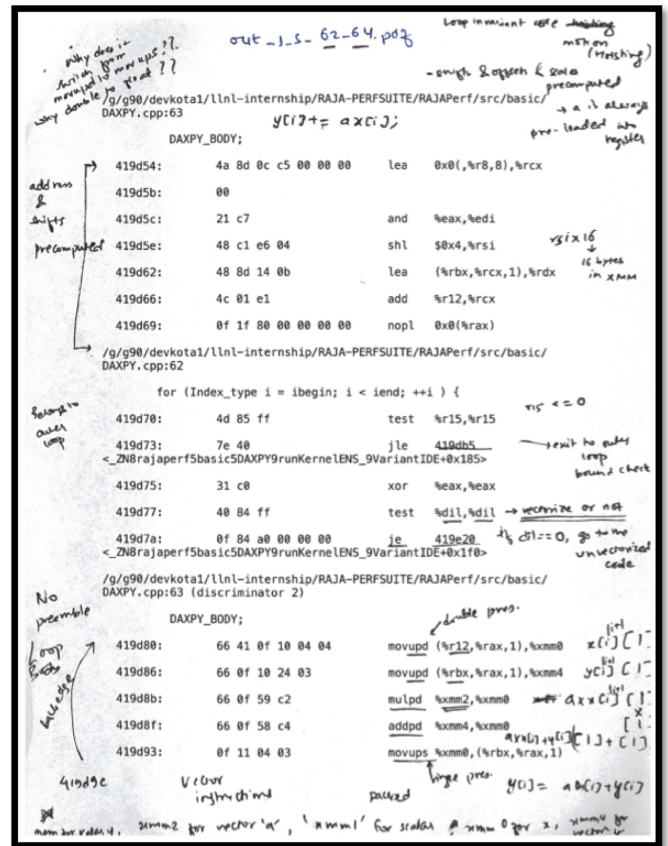 out_J_S_62-64.pdf
Loop invariant code hoisting
motion
(Hoisting)
Why does it
switch from
movupd to movups ??
why double to float ??
precomputed
→ a is always
pre-loaded into
register
/g/g90/devkota1/llnl-internship/RAJA-PERFSUITE/RAJAPerf/src/basic/
DAXPY.cpp:63
y[i] += a x[i];
DAXPY_BODY;
419d54: 4a 8d 0c c5 00 00 00 lea 0x0(,%r8,8),%rcx
address
&
shifts
precomputed
419d5b: 00
419d5c: 21 c7 and %eax,%edi
419d5e: 48 c1 e6 04 shl $0x4,%rsi
rsi x 16
↓
16 bytes
in XMM
419d62: 48 8d 14 0b lea (%rbx,%rcx,1),%rdx
419d66: 4c 01 e1 add %r12,%rcx
419d69: 0f 1f 80 00 00 00 00 nopl 0x0(%rax)
/g/g90/devkota1/llnl-internship/RAJA-PERFSUITE/RAJAPerf/src/basic/
DAXPY.cpp:62
for (Index_type i = ibegin; i < iend; ++i ) {
Belongs to
outer
loop
419d70: 4d 85 ff test %r15,%r15
r15 <= 0
419d73: 7e 40 jle 419db5
→ exit to outer
loop
bound check
<_ZN8rajaperf5basic5DAXPY9runKernelENS_9VariantIDE+0x185>
419d75: 31 c0 xor %eax,%eax
419d77: 40 84 ff test %dil,%dil → vectorize or not
419d7a: 0f 84 a0 00 00 00 je 419e20
if dil==0, go to the
unvectorized
code
<_ZN8rajaperf5basic5DAXPY9runKernelENS_9VariantIDE+0x1f0>
/g/g90/devkota1/llnl-internship/RAJA-PERFSUITE/RAJAPerf/src/basic/
DAXPY.cpp:63 (discriminator 2)
No
preamble
DAXPY_BODY;
double pres.
Loop
Body
backedge
419d80: 66 41 0f 10 04 04 movupd (%r12,%rax,1),%xmm0
x[i]
419d86: 66 0f 10 24 03 movupd (%rbx,%rax,1),%xmm4
y[i]
419d8b: 66 0f 59 c2 mulpd %xmm2,%xmm0
a x x[i]
419d8f: 66 0f 58 c4 addpd %xmm4,%xmm0
419d93: 0f 11 04 03 movups %xmm0,(%rbx,%rax,1)
419d9c
Vector
instructions
packed
single pres.
y[i] = a x[i] + y[i]
xmm2 for vector 'a', 'xmm1' for scalar
xmm0 for x, xmm4 for
vector y